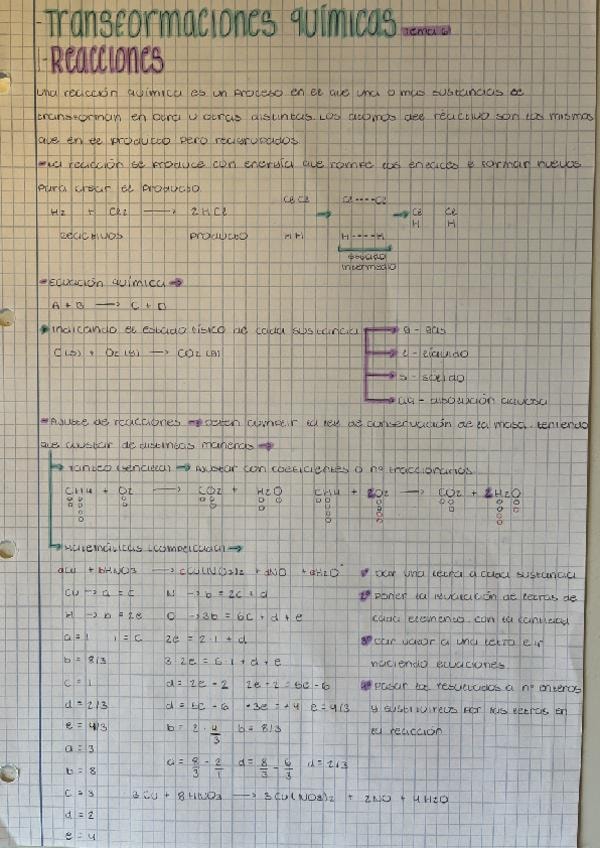 -Transformaciones químicas Tema 6
1-Reacciones
Una reacción química es un proceso en el que una o más sustancias se
transforman en otra u otras distintas. Los átomos del reactivo son los mismos
que en el producto pero reagrupados
-La reacción se produce con energía que rompe los enlaces e forman nuevos
para crear el producto
H2 + Cl2 → 2HCl
Cl Cl → Cl----Cl → Cl Cl
H H H----H H H
Reactivos Producto
estado
intermedio
-Ecuación química →
A + B → C + D
Indicando el estado físico de cada sustancia
C(s) + O2(g) → CO2(g)
g - gas
l - líquido
s - sólido
aq - disolución acuosa
-Ajuste de reacciones → deben cumplir la ley de conservación de la masa, teniendo
que ajustar de distintas maneras →
Tanteo (sencilla) → Ajustar con coeficientes o nº fraccionarios
CH4 + O2 → CO2 + H2O CH4 + 2O2 → CO2 + 2H2O
Matemáticas (complicada) →
aCu + bHNO3 → cCu(NO3)2 + dNO + eH2O
Cu → a = c N → b = 2c + d
H → b = 2e O → 3b = 6c + d + e
a = 1 1 = c 2e = 2·1 + d
b = 8/3 3·2e = 6·1 + d + e
c = 1 d = 2e - 2 2e - 2 = 5e - 6
d = 2/3 d = 5e - 6 -3e = -4 e = 4/3
e = 4/3 b = 2·4/3 b = 8/3
a = 3 d = 8/3 - 2/1 d = 8/3 - 6/3 d = 2/3
b = 8
c = 3 3Cu + 8HNO3 → 3Cu(NO3)2 + 2NO + 4H2O
d = 2
e = 4
1º Dar una letra a cada sustancia
2º Poner la igualación de letras de
cada elemento con la cantidad
3º Dar valor a una letra e ir
haciendo ecuaciones
4º Pasar los resultados a nº enteros
y sustituirlos por las letras en
la reacción